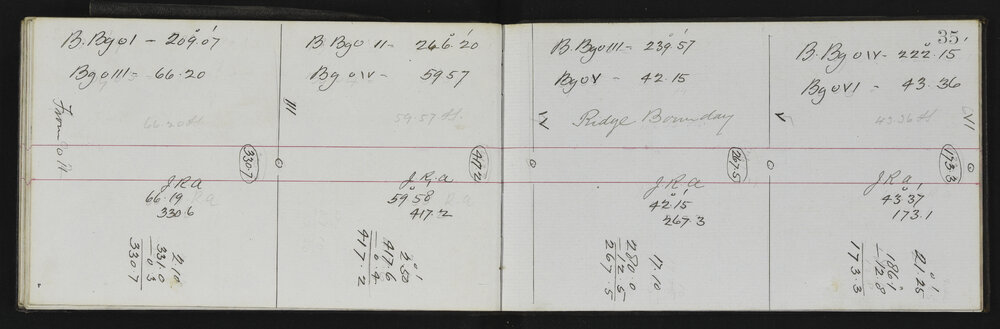 35
B. Bg o I - 209° 07'
Bg o III - 66.20
From o A
66.20 ft
3307
J.R.A
66.19
330.6
2.10
331.0
- 0 3
3307
B. Bg o II - 246° 20'
Bg o IV - 59 57
III
59.57 ft.
417.2
J.R.A
59° 58'
417.2
2° 50'
417.6
- 0.4
417.2
B. Bg o III - 239° 57'
Bg o V - 42.15
IV
Ridge Boundary
267.5
J.R.A
42° 15'
267.3
17.10
280 0
- 12 5
267.5
B. Bg o IV - 222° 15'
Bg o VI - 43.36
V
43.36 ft
VI
173.3
J.R.A
43° 37'
173.1
21° 25'
186 1
- 12 8
173 3